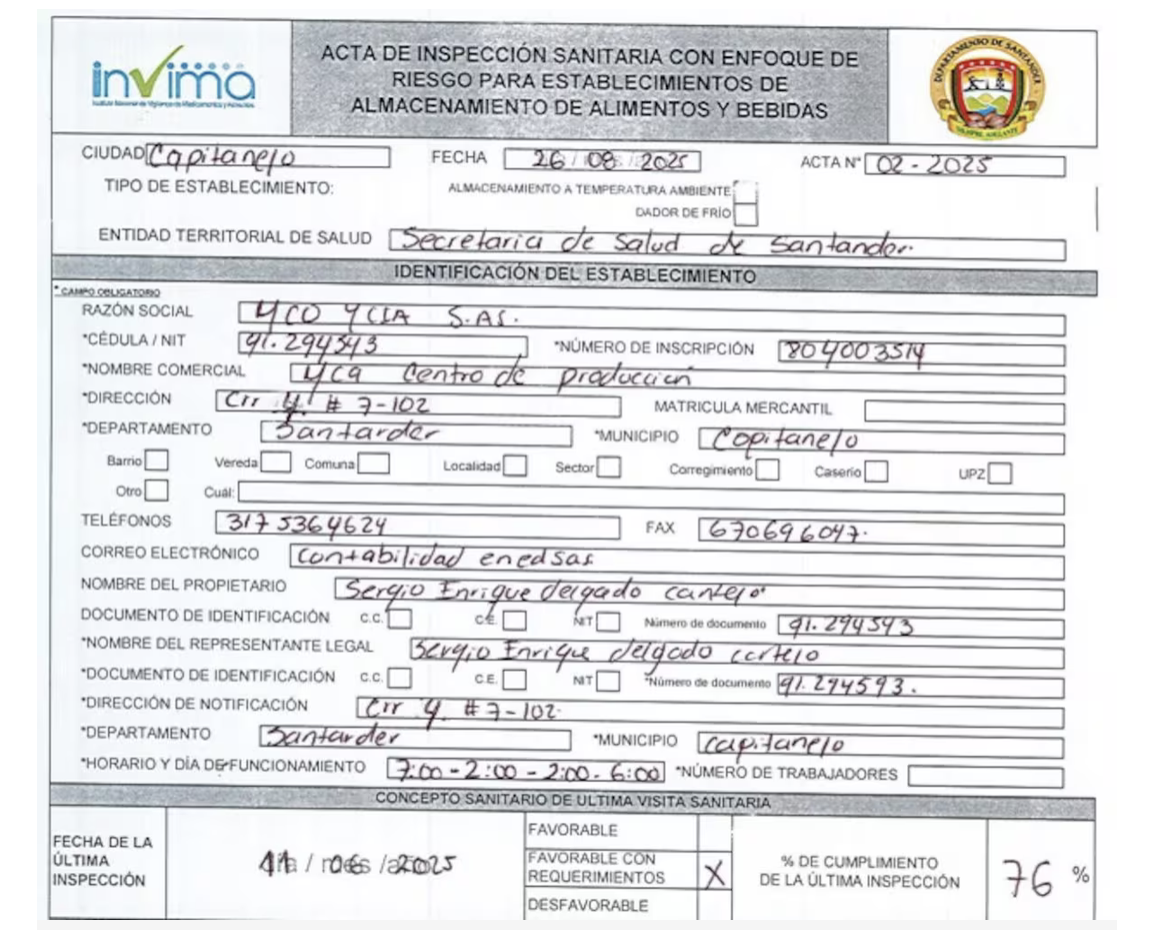 invima
Instituto Nacional de Vigilancia de Medicamentos y Alimentos
ACTA DE INSPECCIÓN SANITARIA CON ENFOQUE DE
RIESGO PARA ESTABLECIMIENTOS DE
ALMACENAMIENTO DE ALIMENTOS Y BEBIDAS
DEPARTAMENTO DE SANTANDER
SIEMPRE ADELANTE
CIUDAD Capitanejo FECHA 26/08/2025 ACTA N° 02-2025
TIPO DE ESTABLECIMIENTO: ALMACENAMIENTO A TEMPERATURA AMBIENTE
DADOR DE FRÍO
ENTIDAD TERRITORIAL DE SALUD Secretaria de Salud de Santander.
IDENTIFICACIÓN DEL ESTABLECIMIENTO
* CAMPO OBLIGATORIO
RAZÓN SOCIAL YCO YCIA S.AS.
*CÉDULA / NIT 91.294543 *NÚMERO DE INSCRIPCIÓN 804003514
*NOMBRE COMERCIAL Centro de producción
*DIRECCIÓN Crr 4. # 7-102 MATRICULA MERCANTIL
*DEPARTAMENTO Santarder *MUNICIPIO Copitanejo
Barrio Vereda Comuna Localidad Sector Corregimiento Caserío UPZ
Otro Cuál:
TELÉFONOS 317 5364624 FAX 670696047.
CORREO ELECTRÓNICO contabilidad enedsas
NOMBRE DEL PROPIETARIO Sergio Enrique delgado
DOCUMENTO DE IDENTIFICACIÓN C.C. C.E. NIT Número de documento 91.294593
*NOMBRE DEL REPRESENTANTE LEGAL Sergio Enrique delgado
*DOCUMENTO DE IDENTIFICACIÓN C.C. C.E. NIT *Número de documento 91.294593.
*DIRECCIÓN DE NOTIFICACIÓN Crr 4. #7-102
*DEPARTAMENTO Santarder *MUNICIPIO capitanejo
*HORARIO Y DÍA DE FUNCIONAMIENTO 7:00-2:00-2:00-6:00 *NÚMERO DE TRABAJADORES
CONCEPTO SANITARIO DE ULTIMA VISITA SANITARIA
FECHA DE LA
ÚLTIMA
INSPECCIÓN
11 / 06 / 2025
FAVORABLE
FAVORABLE CON
REQUERIMIENTOS X
DESFAVORABLE
% DE CUMPLIMIENTO
DE LA ÚLTIMA INSPECCIÓN
76 %